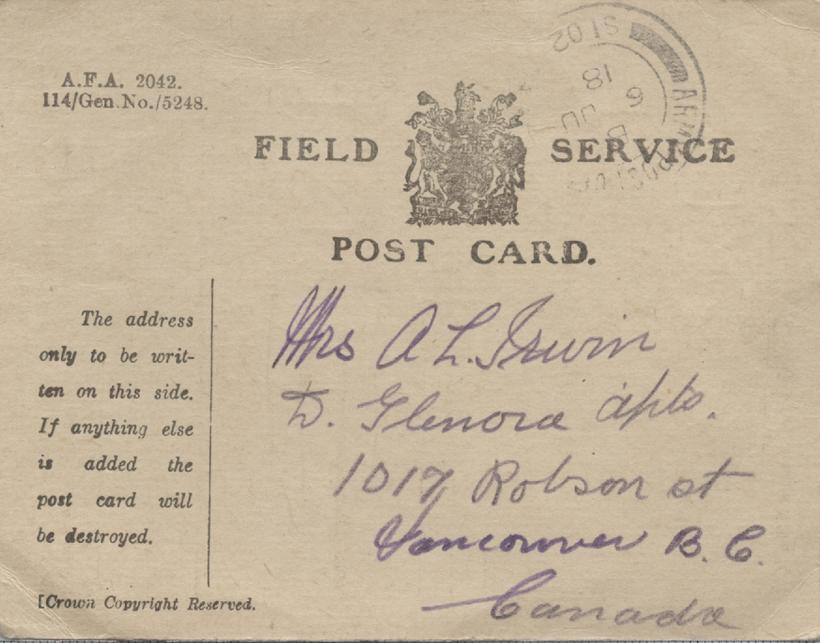 A.F.A. 2042.
114/Gen.No./5248.
FIELD SERVICE
POST CARD.
The address
only to be writ-
ten on this side.
If anything else
is added the
post card will
be destroyed.
[Crown Copyright Reserved.
Mrs A. L. Irwin
D. Glenora apts.
1017 Robson st
Vancouver B. C.
Canada
S102
18
6
JU
B